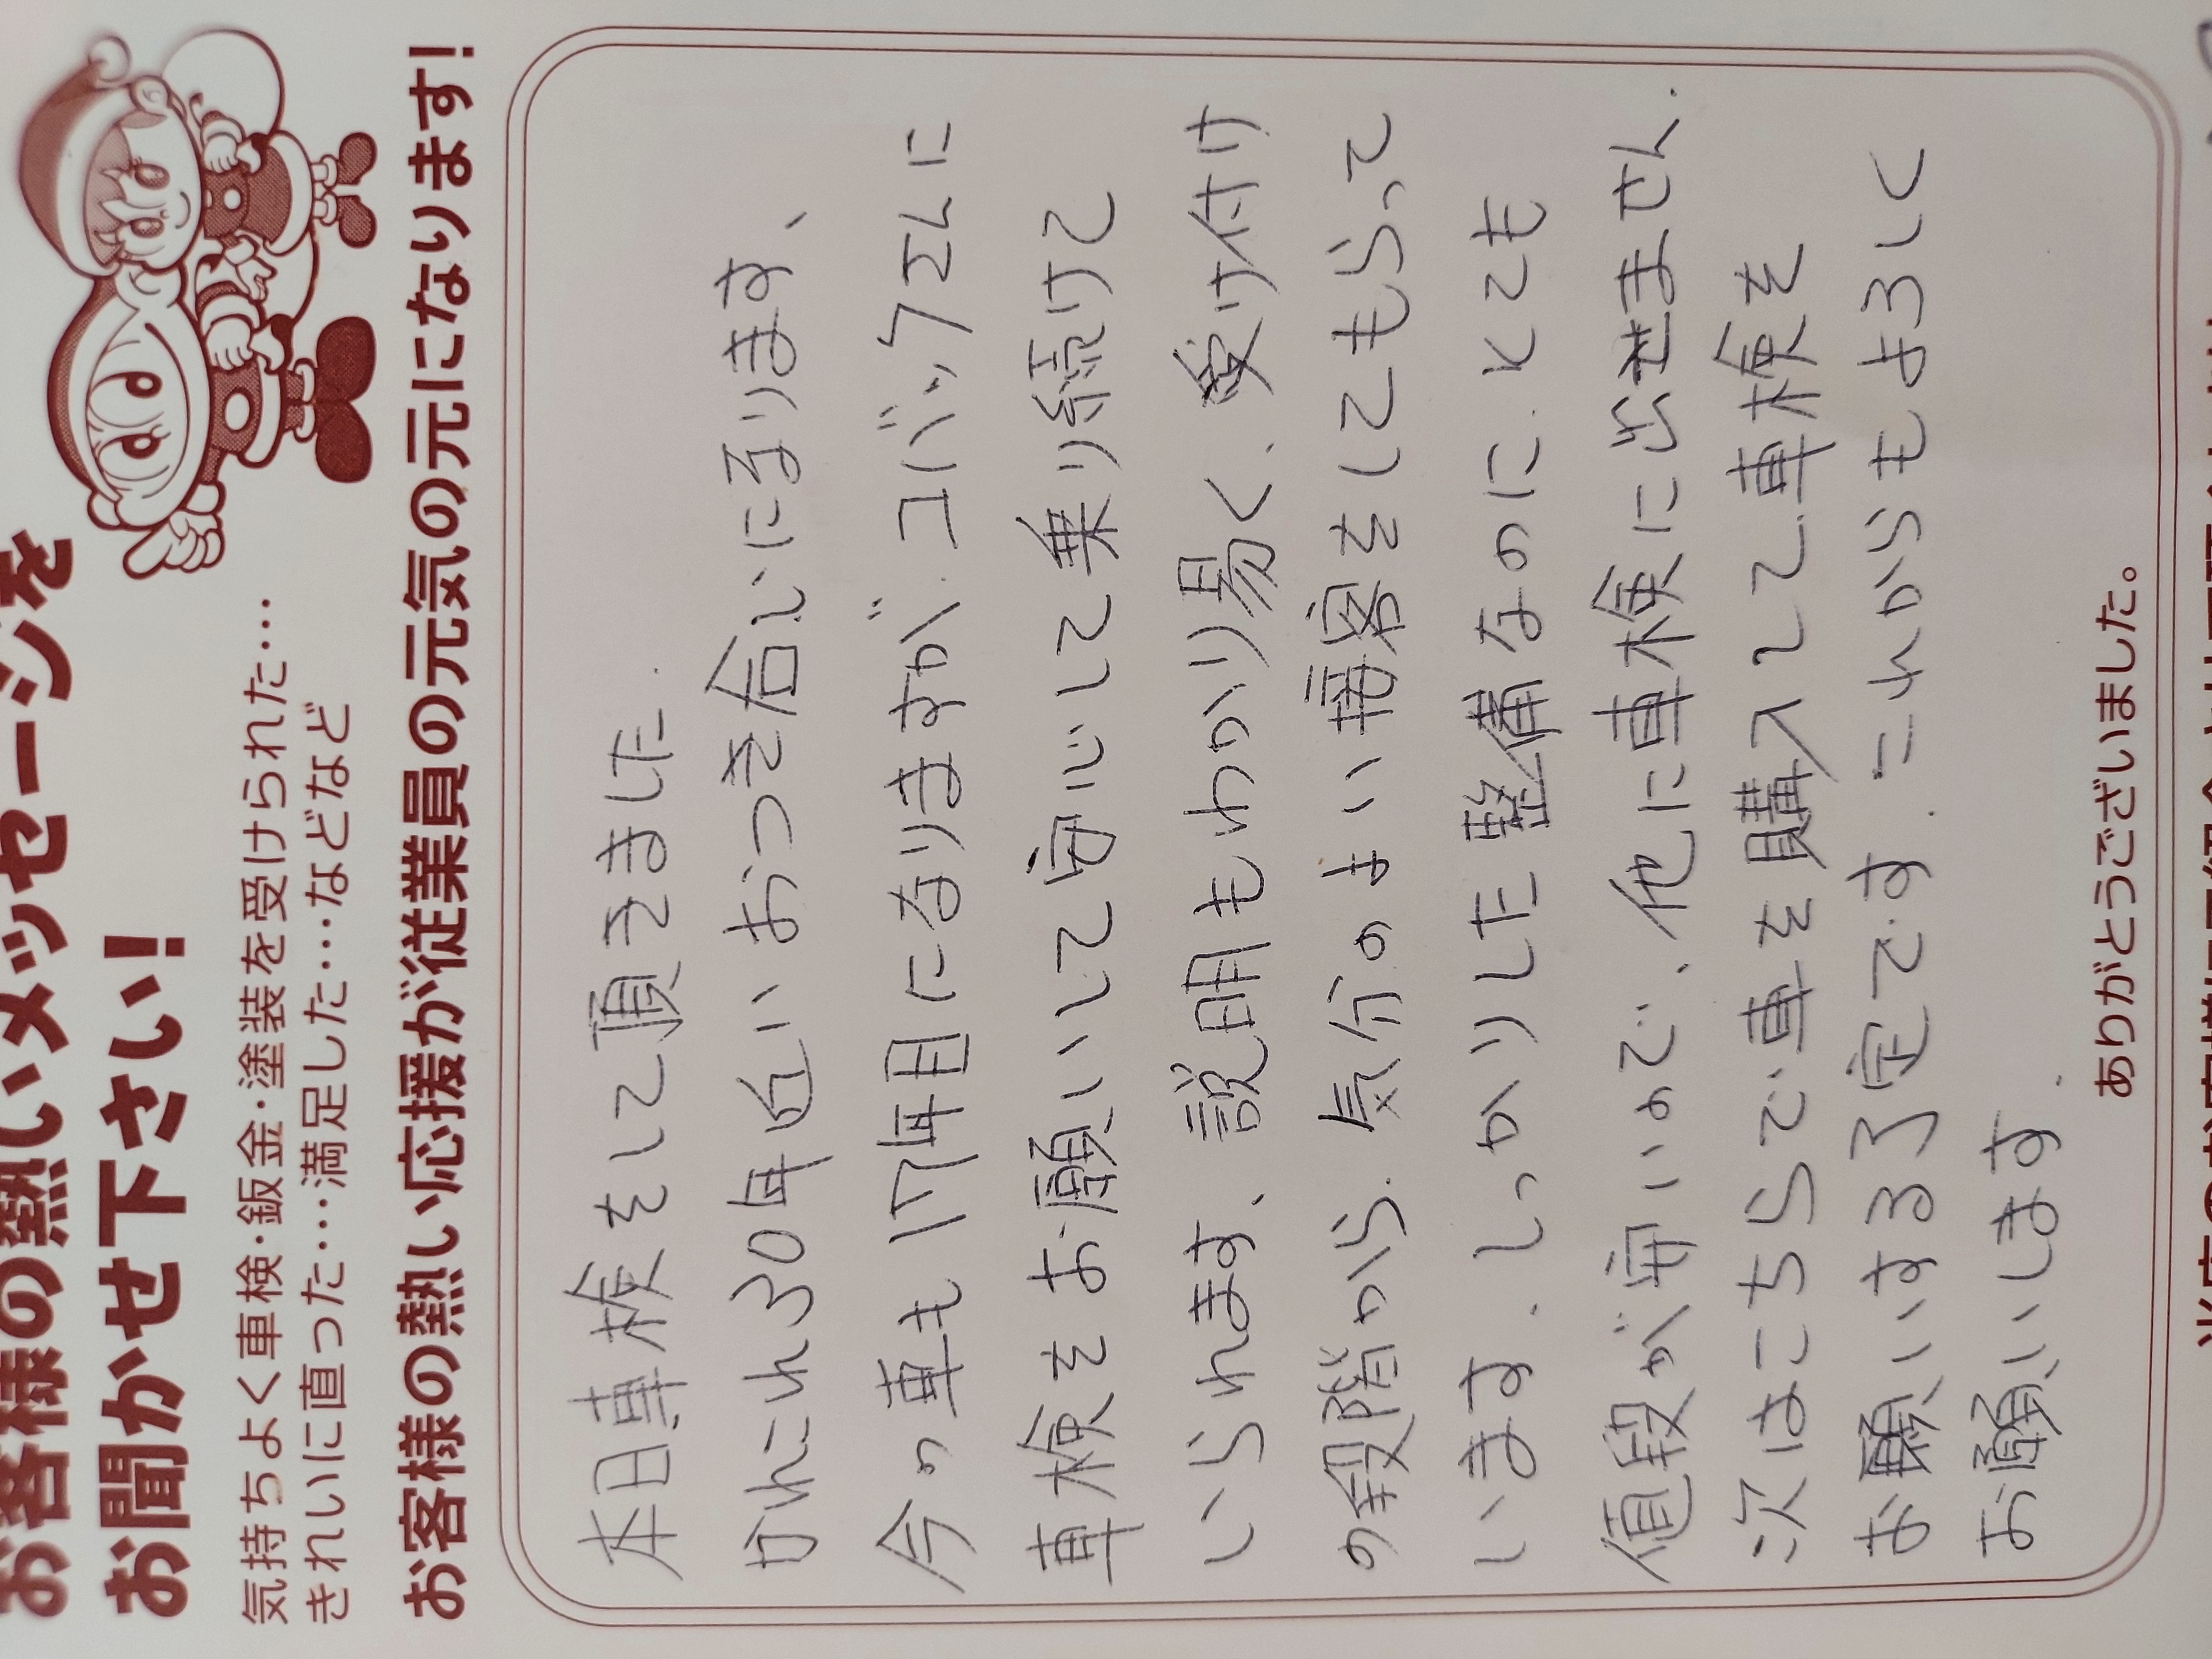 お客様の熱いメッセージを
お聞かせ下さい!
気持ちよく車検・鈑金・塗装を受けられた…
きれいに直った…満足した…などなど
お客様の熱い応援が従業員の元気の元になります!
本日車検をして頂きました.
かれこれ30年近いおつき合いになります、
今の車も17年目になりますが.コバックエムに
車検をお願いして安心して乗り続けて
いられます、説明もわかり易く.受け付け
の段階から.気分のよい接客をしてもらって
います.しっかりした整備なのに.とても
値段が安いので、他に車検に出せません.
次はこちらで車を購入して車検を
お願いする予定です.これからもよろしく
お願いします.
ありがとうございました。